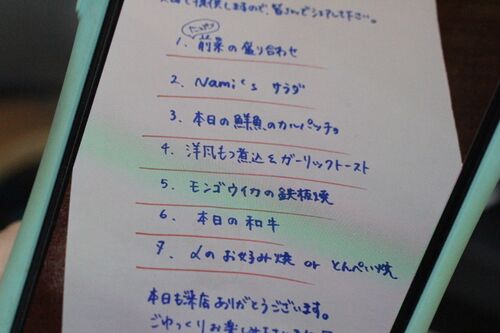 で提供しますので、皆さんでシェアして下さい。
1. 前菜の盛り合わせ
2. Nami's サラダ
3. 本日の鮮魚のカルパッチョ
4. 洋風もつ煮込&ガーリックトースト
5. モンゴウイカの鉄板焼
6. 本日の和牛
7. のお好み焼 or とんぺい焼
本日も来店ありがとうございます。
ごゆっくりお楽し